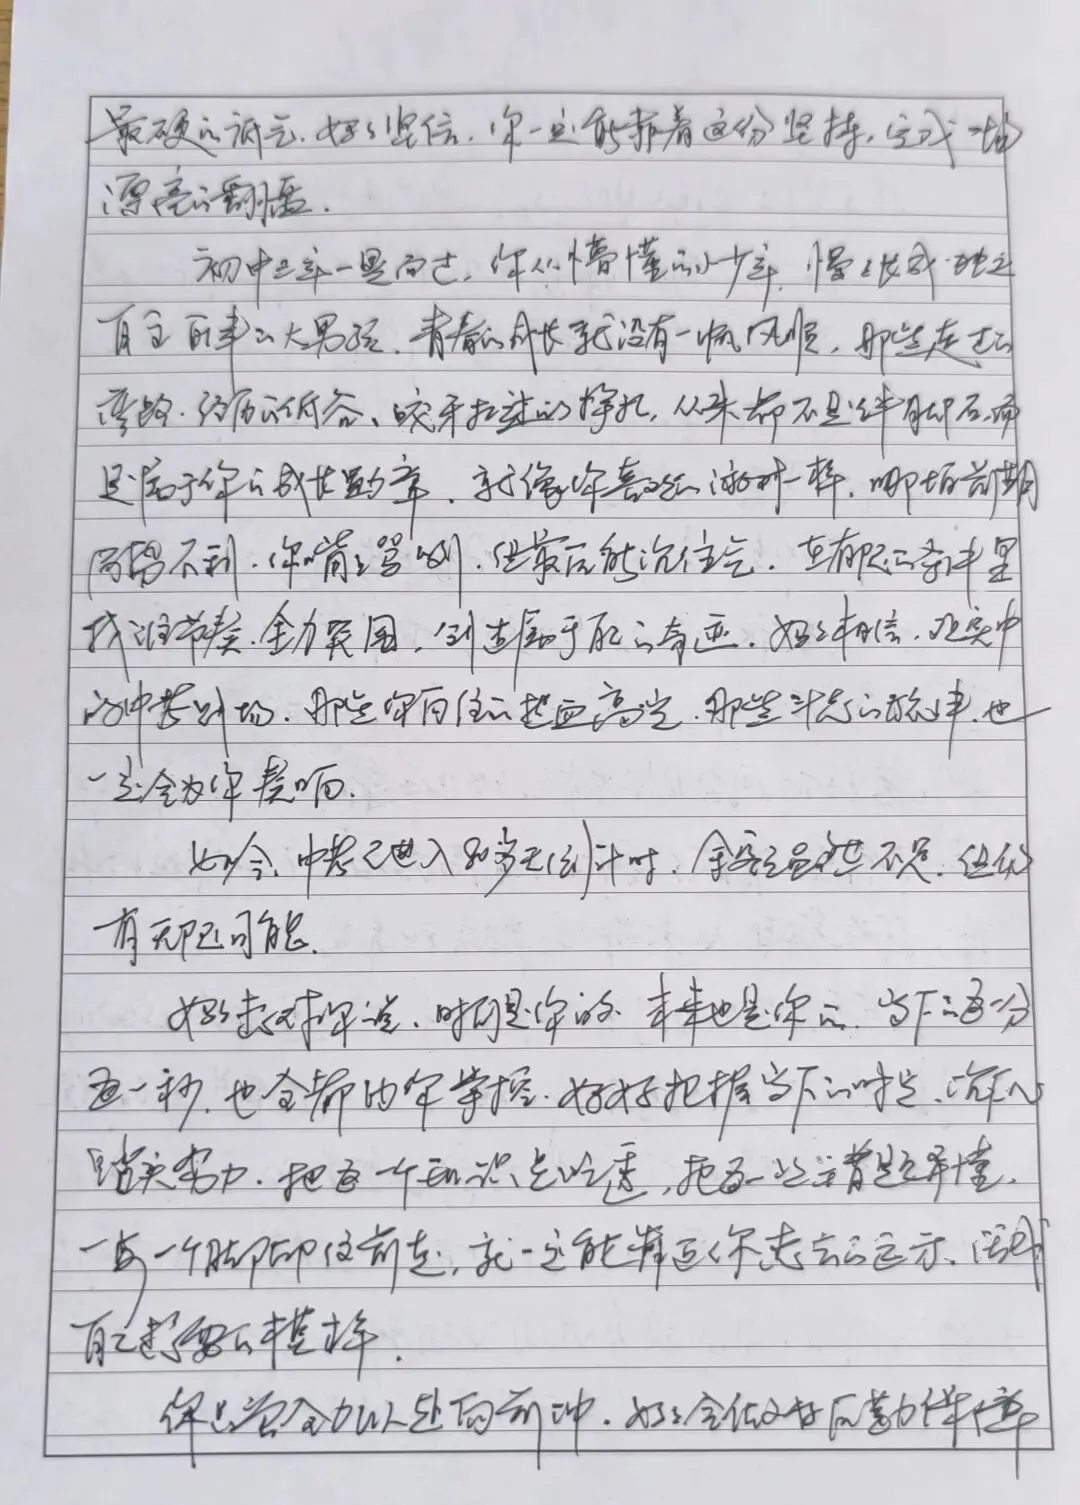 最硬的底气。妈妈坚信,你一定能靠着这份坚持,完成一场
漂亮的翻盘。
初中三年一晃而过,你从懵懂的小少年,慢慢长成独立
自主的大男孩。青春的成长就没有一帆风顺,那些走过的
弯路、经历的低谷、咬牙挣扎,从来都不是绊脚石,而
是属于你的成长勋章。就像你喜欢的游戏一样,哪怕前期
局势不利,你嘴上骂咧,但最后能沉住气,在有限的条件里
找准节奏,全力突围,创造属于自己的奇迹。妈妈相信,现实中
的中考战场,那些你向往的热血高光,那些斗志的旋律,也
一定会为你奏响。
如今,中考已进入30多天倒计时,余额虽然不足,但仍
有无限可能。
妈妈想对你说,时间是你的,未来也是你的,当下的每一分
每一秒,也全都由你掌控。好好把握当下的时光,沉下心
踏实努力,把每一个知识点吃透,把每一道题弄懂,
一步一个脚印往前走,就一定能活成
自己想要的模样。
你只管全力以赴向前冲,妈妈会做好后勤保障